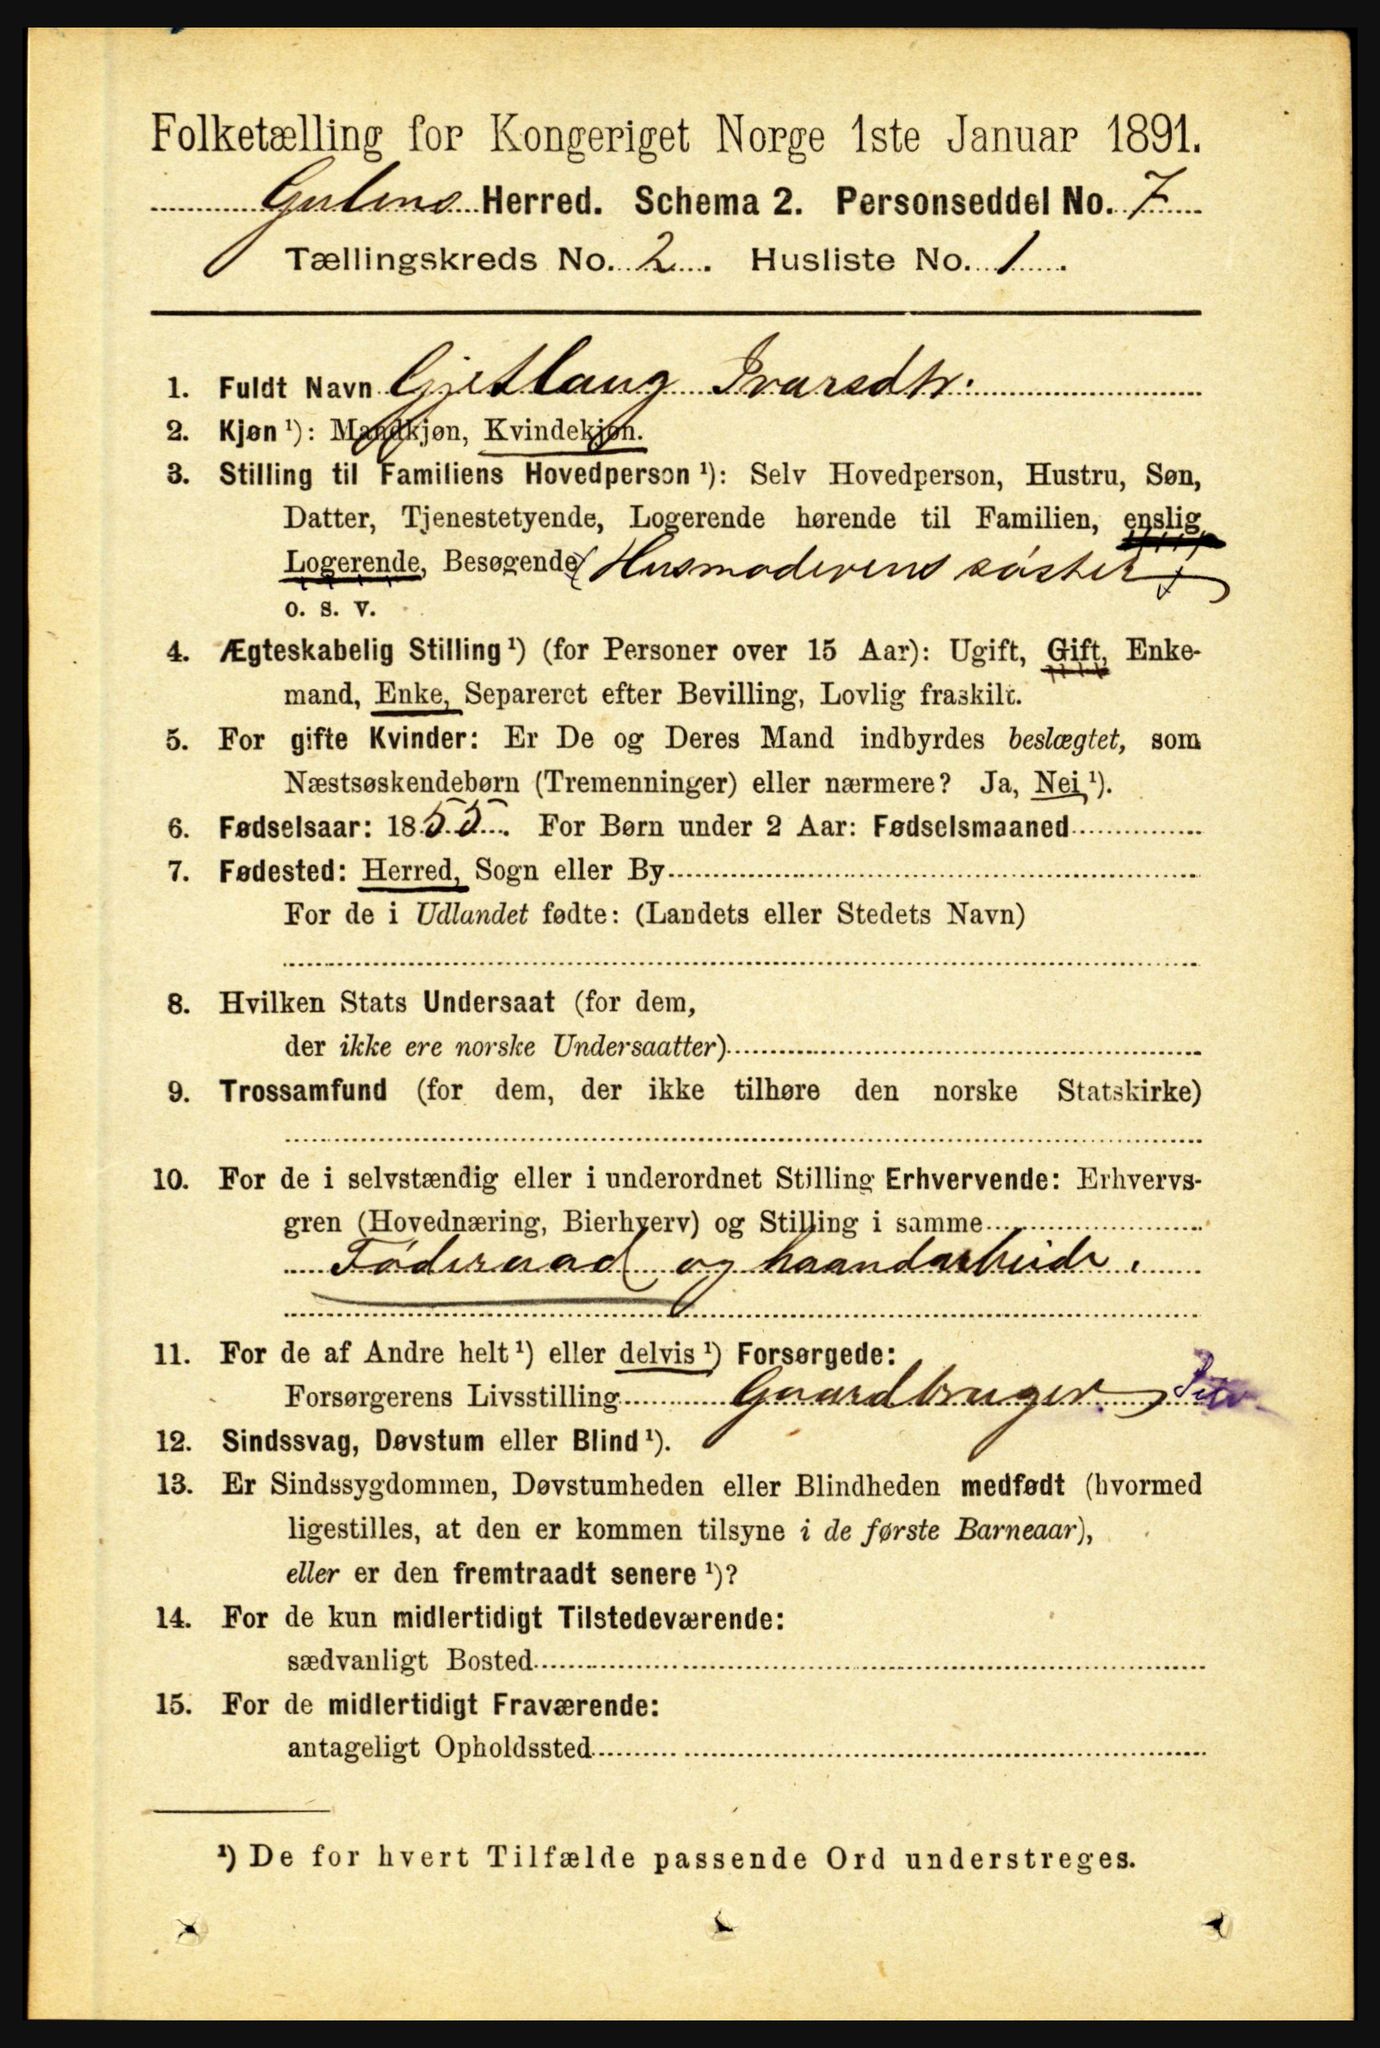 Folketælling for Kongeriget Norge 1ste Januar 1891.
Gulens Herred. Schema 2. Personseddel No. 7
Tællingskreds No. 2. Husliste No. 1.
1. Fuldt Navn Gjetlaug Ivarsdtr.
2. Kjøn ¹): Mandkjøn, Kvindekjøn.
3. Stilling til Familiens Hovedperson ¹): Selv Hovedperson, Hustru, Søn,
Datter, Tjenestetyende, Logerende hørende til Familien, enslig
Logerende, Besøgende (Husmoderens søster)
o. s. v.
4. Ægteskabelig Stilling ¹) (for Personer over 15 Aar): Ugift, Gift, Enke-
mand, Enke, Separeret efter Bevilling, Lovlig fraskilt.
5. For gifte Kvinder: Er De og Deres Mand indbyrdes beslægtet, som
Næstsøskendebørn (Tremenninger) eller nærmere? Ja, Nei ¹).
6. Fødselsaar: 1855. For Børn under 2 Aar: Fødselsmaaned
7. Fødested: Herred, Sogn eller By
For de i Udlandet fødte: (Landets eller Stedets Navn)
8. Hvilken Stats Undersaat (for dem,
der ikke ere norske Undersaatter)
9. Trossamfund (for dem, der ikke tilhøre den norske Statskirke)
10. For de i selvstændig eller i underordnet Stilling Erhvervende: Erhvervs-
gren (Hovednæring, Bierhverv) og Stilling i samme
Føderaad og haandarbeide.
11. For de af Andre helt ¹) eller delvis ¹) Forsørgede:
Forsørgerens Livsstilling Gaardbruger
12. Sindssvag, Døvstum eller Blind ¹).
13. Er Sindssygdommen, Døvstumheden eller Blindheden medfødt (hvormed
ligestilles, at den er kommen tilsyne i de første Barneaar),
eller er den fremtraadt senere ¹)?
14. For de kun midlertidigt Tilstedeværende:
sædvanligt Bosted
15. For de midlertidigt Fraværende:
antageligt Opholdssted
¹) De for hvert Tilfælde passende Ord understreges.